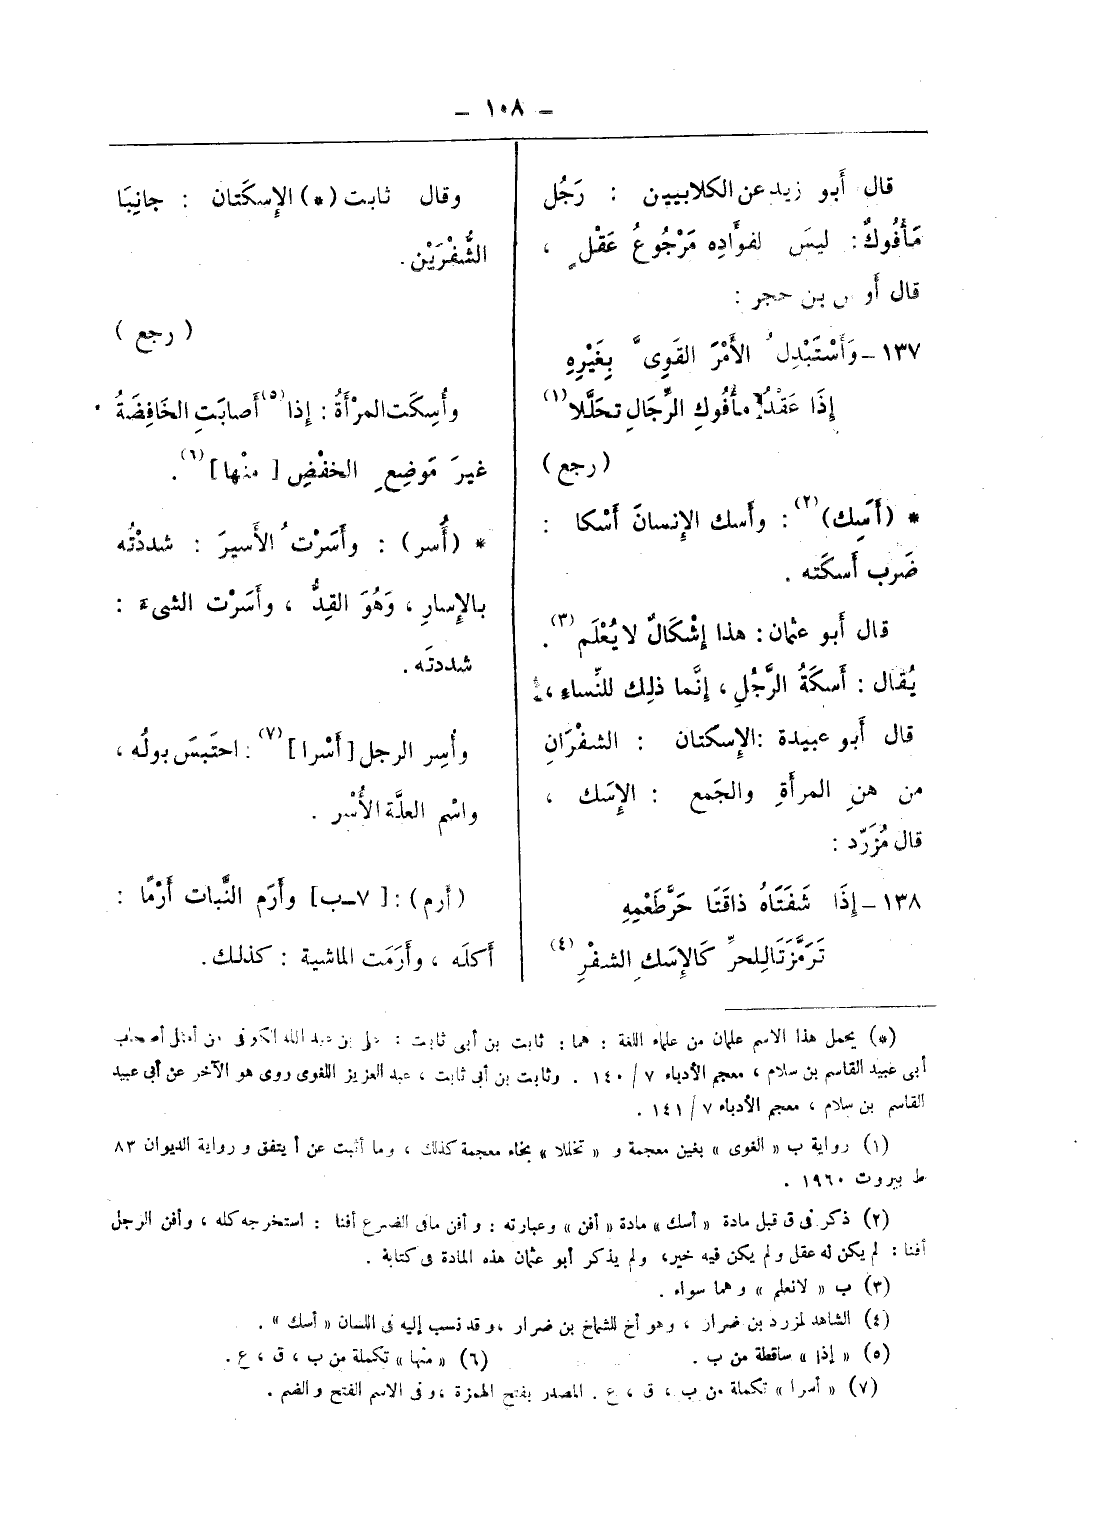 – ١٠٨ –
قال أَبو زيد عن الكلابيين : رَجُل
مَأْفُوكٌ: ليسَ لفؤَادِه مَرْجُوعُ عَقْلٍ ،
قال أَوس بن حجر :
١٣٧ – وَأَسْتَبْدِلُ الأَمْرَ القَوِىَّ بِغَيْرِهِ
إِذَا عَقْدُ مأْفُوكِ الرِّجَالِ تحَلَّلا (١)
( رجع )
* (أَسِك) (٢) : وأَسك الإِنسانَ أَسْكا :
ضَرب أَسكَته .
قال أَبو عثمان : هذا إِشْكَالٌ لا يُعْلَم (٣) .
يُقَال : أَسكَةُ الرَّجُلِ ، إِنَّما ذلِك للنِّساءِ ،
قال أَبو عبيدة : الإِسكتان : الشفْرَانِ
من هنِ المرأَةِ والجَمع : الإِسَك ،
قال مُزَرِّد :
١٣٨ – إِذَا شَفَتَاهُ ذاقَتَا حَرَّ طَعْمِهِ
تَرَمَّزَتَا لِلحرِّ كَالإِسَكِ الشفْرِ (٤)
وقال ثابت (*) الإِسكَتان : جانِبَا
الشُّفْرَيْن .
( رجع )
وأُسِكَت المرْأَةُ : إِذا (٥) أَصابَتِ الخَافِضَةُ
غيرَ مَوضِعِ الخفْضِ [ منْها ] (٦) .
* (أَسر) : وأَسَرْتُ الأَسيرَ : شددْتُه
بالإِسارِ ، وَهُوَ القِدُّ ، وأَسَرْت الشىءَ :
شددتَه .
وأُسِر الرجل [ أَسْرا ] (٧) : احتَبسَ بولُه ،
واسْم العلَّة الأُسْر .
(أرم) : [ ٧ – ب] وأَرَم النَّبات أَرْمًا :
أَكلَه ، وأَرَمَت الماشية : كذلك .
(*) يحمل هذا الاسم علمان من علماء اللغة : هما : ثابت بن أبى ثابت : على بن عبد الله الكوفى من أمثل أصحاب
أبى عبيد القاسم بن سلام ، معجم الأدباء ٧ / ١٤٠ . وثابت بن أبى ثابت ، عبد العزيز اللغوى روى هو الآخر عن أبى عبيد
القاسم بن سلام ، معجم الأدباء ٧ / ١٤١ .
(١) رواية ب « الغوى » بغين معجمة و « تخللا » بخاء معجمة كذلك ، وما أثبت عن أ يتفق و رواية الديوان ٨٣
ط بيروت ١٩٦٠ .
(٢) ذكر فى ق قبل مادة « أسك » مادة « أفن » وعبارته : و أفن مافى الضرع أفنا : استخرجه كله ، وأفن الرجل
أفنا : لم يكن له عقل و لم يكن فيه خير، ولم يذكر أبو عثمان هذه المادة فى كتابة .
(٣) ب « لانعلم » و هما سواء .
(٤) الشاهد لمزرد بن ضرار ، وهو أخ للشماخ بن ضرار ، وقد نسب إليه فى اللسان « أسك » .
(٥) « إذا » ساقطة من ب . (٦) « منها » تكملة من ب ، ق ، ع .
(٧) « أسرا » تكملة من ب ، ق ، ع . المصدر بفتح الهمزة ، وفى الاسم الفتح و الضم .